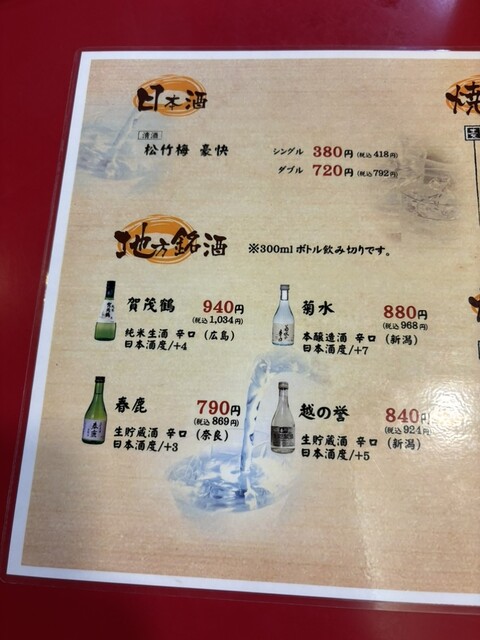 日本酒
清酒
松竹梅 豪快 シングル 380円(税込418円)
ダブル 720円(税込792円)
地方銘酒 ※300mlボトル飲み切りです。
賀茂鶴 940円
(税込1,034円)
純米生酒 辛口 (広島)
日本酒度/+4
菊水 880円
(税込968円)
本醸造酒 辛口 (新潟)
日本酒度/+7
春鹿 790円
(税込869円)
生貯蔵酒 辛口 (奈良)
日本酒度/+3
越の誉 840円
(税込924円)
生貯蔵酒 辛口 (新潟)
日本酒度/+5
焼